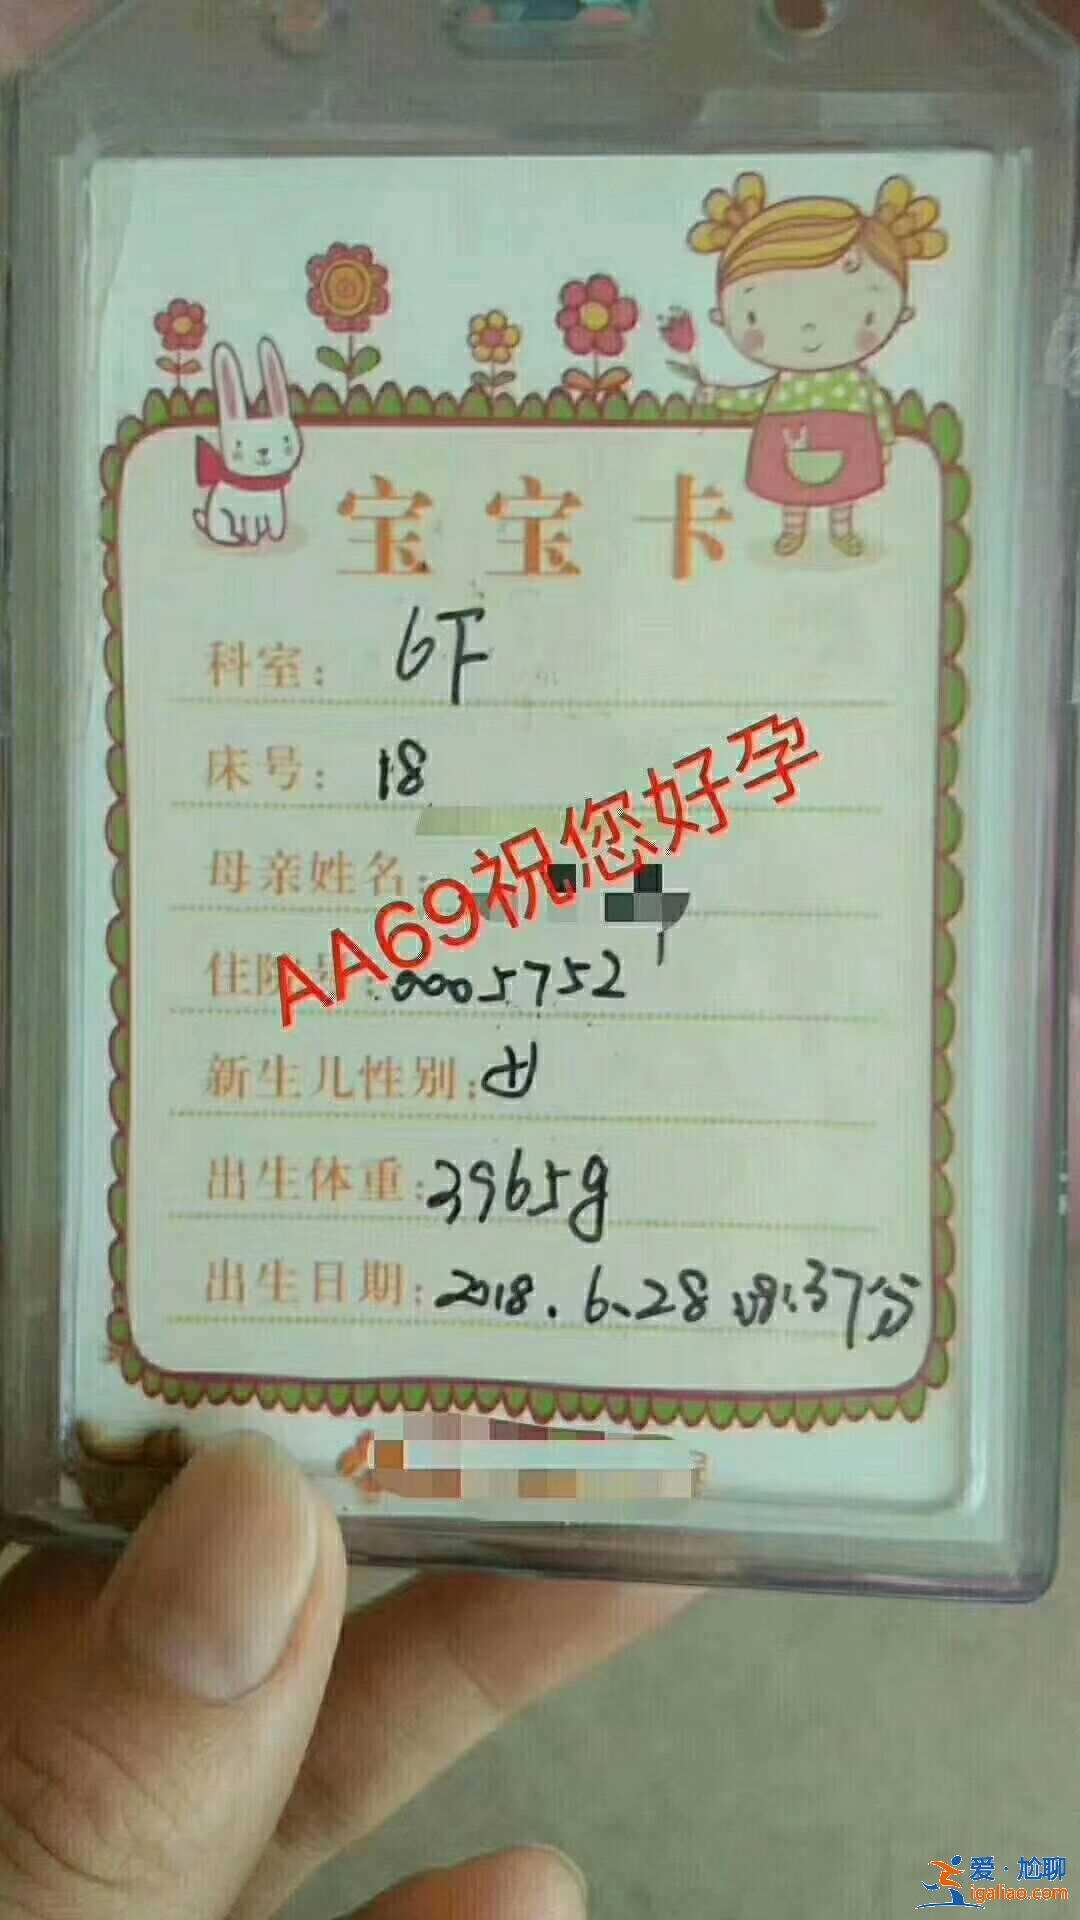 宝宝卡
科室: 6F
床号: 18
母亲姓名:
AA69祝您好孕
住院号: 0005752
新生儿性别:
出生体重: 3965g
出生日期: 2018.6.28 37分
爱·尬聊
igaliao.com